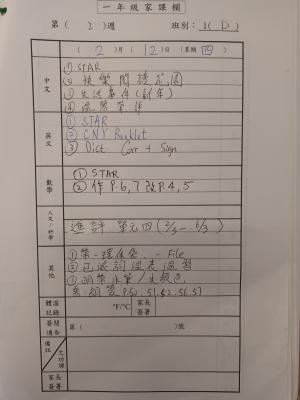 一年級家課欄
第( 2 )週 班別:1( D )
( 2 )月( 12 )日(星期 四 )
中文
① STAR
② 快樂閱讀花園
③ 生活事件(新年)
④ 溫習筆評
英文
① STAR
② CNY Booklet
③ Dict Corr + Sign
數學
① STAR
② 作P.6,7 改P.4,5
人文/科學
進評 單元四(2/3-6/3)
其他
① 帶-環保袋 - File
② 已派詞溫表溫習
P.50, 51, 52, 56, 57
體溫記錄 °F/°C 家長簽署
簽閱通告 第( )號
備註
欠功課
家長簽署